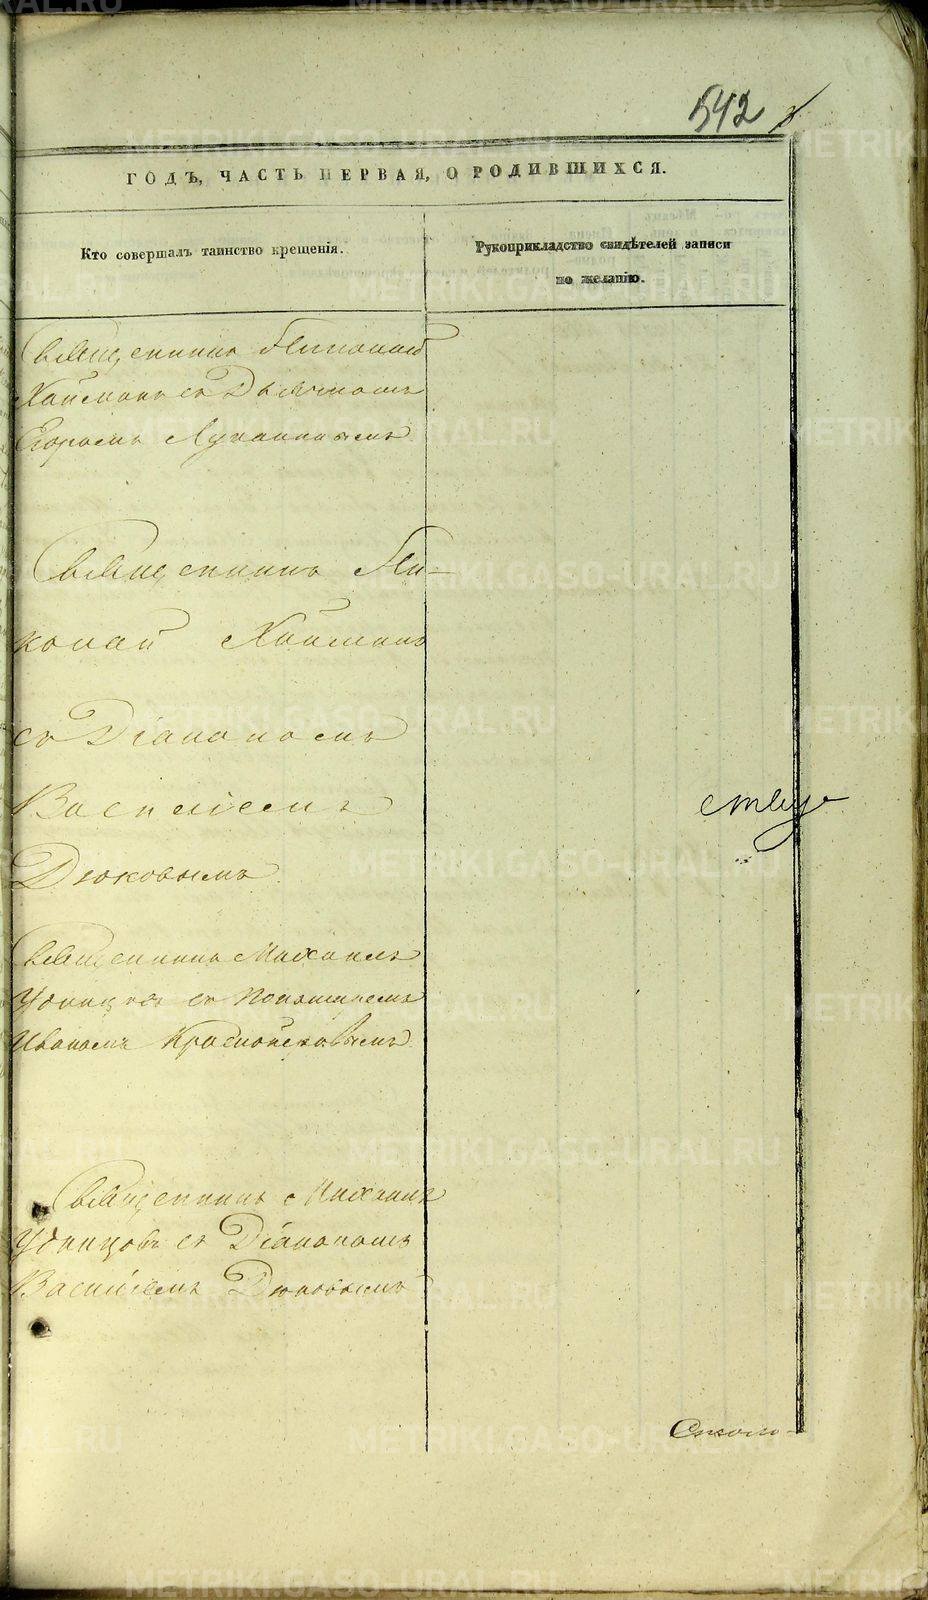 542
ГОДЪ, ЧАСТЬ ПЕРВАЯ, О РОДИВШИХСЯ.
Кто совершалъ таинство крещенія.
Рукоприкладство свидѣтелей записи
по желанію.
Священникъ Николай
съ Дьячкомъ
Егоромъ Лукanинымъ
Священникъ Ни-
колай
съ Діакономъ
Василіемъ
Дюковымъ
Священникъ Михаилъ
Удинцовъ съ Пономаремъ
Иваномъ
Священникъ Михаилъ
Удинцовъ съ Діакономъ
Василіемъ Дюковымъ
METRIKI.GASO-URAL.RU